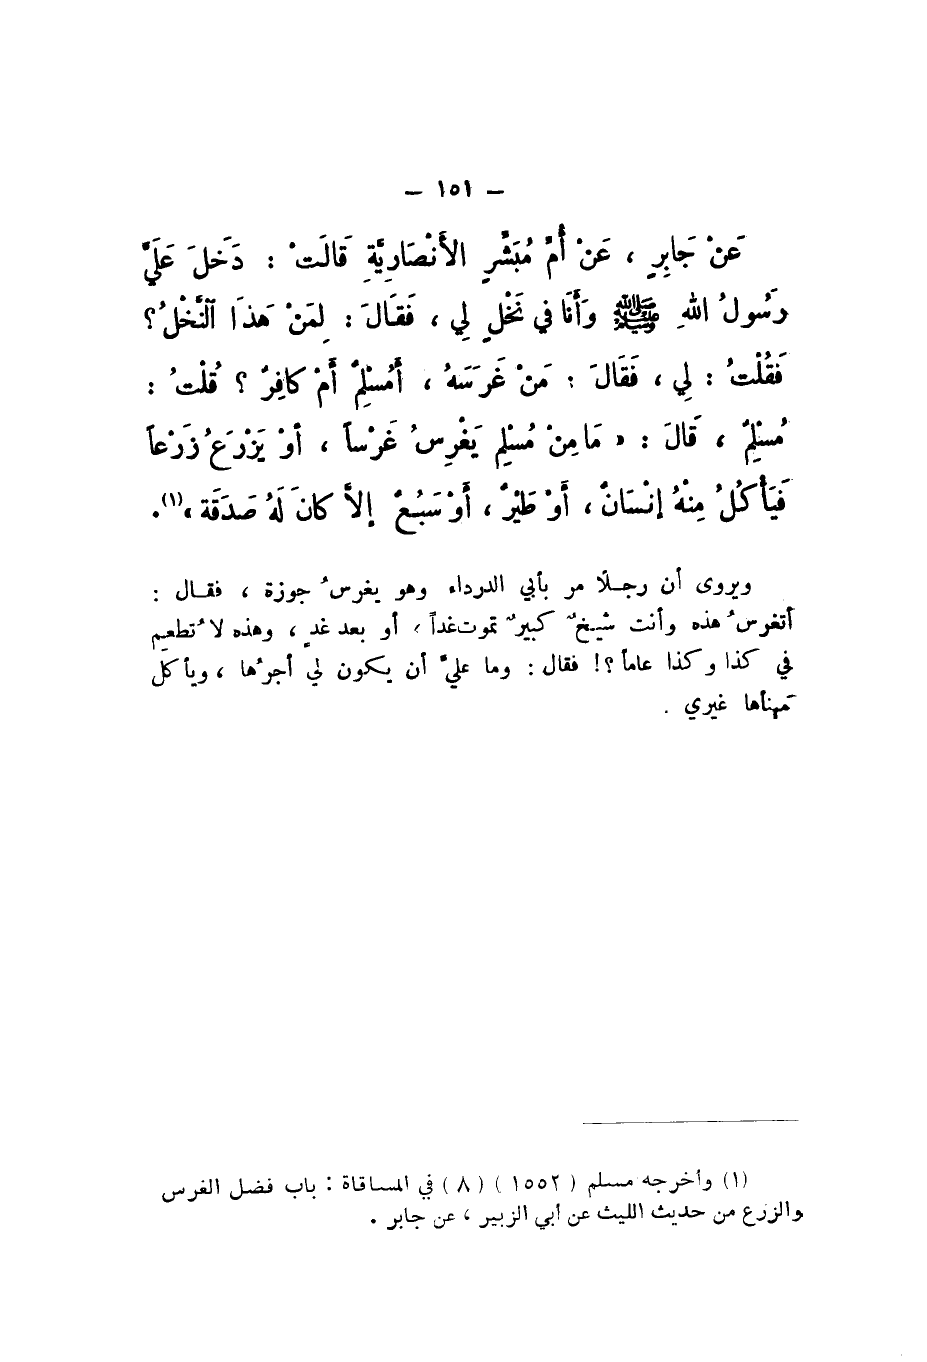 – ١٥١ –
عَنْ جَابِرٍ ، عَنْ أُمِّ مُبَشِّرٍ الأَنْصَارِيَّةِ قَالَتْ : دَخَلَ عَلَيَّ
رَسُولُ اللهِ ﷺ وَأَنَا في نَخْلٍ لِي ، فَقَالَ : لِمَنْ هَذَا النَّخْلُ ؟
فَقُلْتُ : لِي ، فَقَالَ : مَنْ غَرَسَهُ ، أَمُسْلِمٌ أَمْ كافِرٌ ؟ قُلْتُ :
مُسْلِمٌ ، قَالَ : « مَا مِنْ مُسْلِمٍ يَغْرِسُ غَرْساً ، أوْ يَزْرَعُ زَرْعاً
فَيَأْكُلُ مِنْهُ إنْسَانٌ ، أَوْ طَيْرٌ ، أَوْ سَبُعٌ إلاَّ كانَ لَهُ صَدَقَة ،(١).
ويروى أن رجلًا مر بأبي الدرداء وهو يغرسُ جوزة ، فقال :
أتغرسُ هذه وأنت شيخٌ كبيرٌ تموت غداً ، أو بعد غدٍ ، وهذه لا تُطعِم
في كذا وكذا عاماً ؟! فقال : وما عليَّ أن يكون لي أجرُها ، ويأكل
مَهنأها غيري .
(١) وأخرجه مسلم ( ١٥٥٢ ) ( ٨ ) في المساقاة : باب فضل الغرس
والزرع من حديث الليث عن أبي الزبير ، عن جابر .